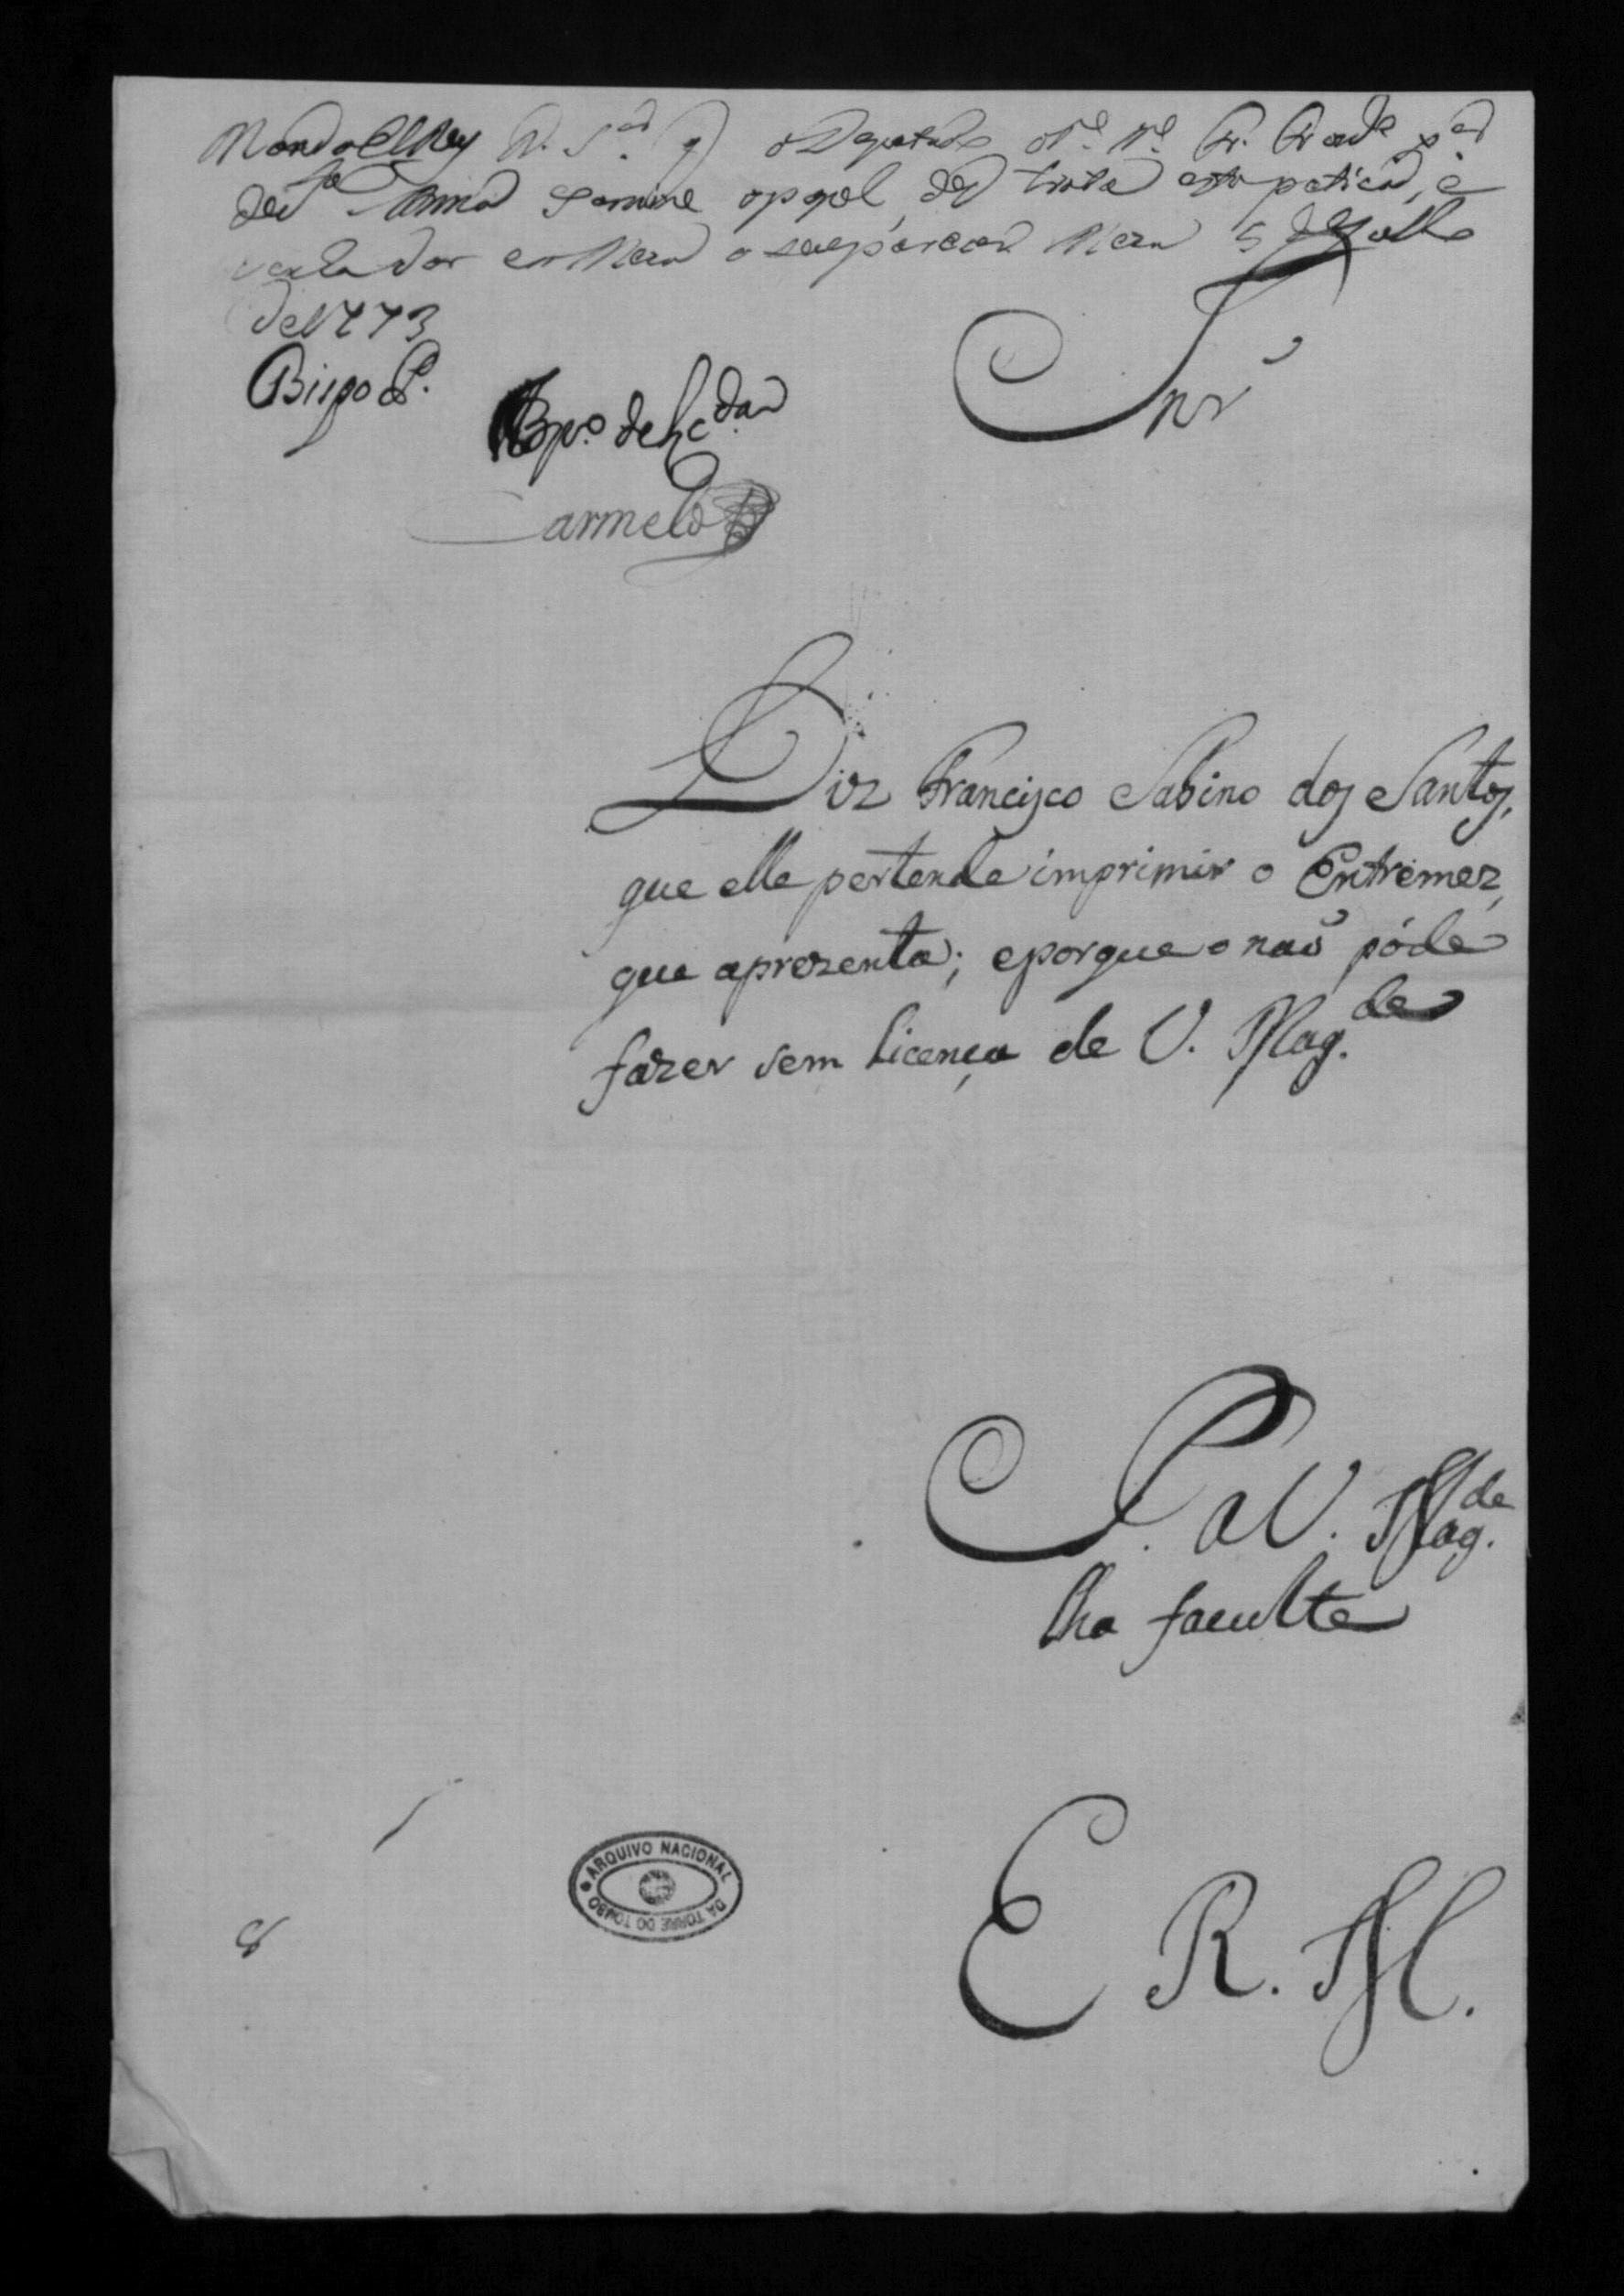 Manda ElRey N. S.ʳ q̃ o Deputado
examine o papel de q̃ trata esta petiçaõ, e
em Meza o seu parecer Meza 5 de Julho
de 1773
Bispo P.
Snr̃
Diz Francisco Sabino dos Santos,
que elle pertende imprimir o Entremez,
que aprezenta; e porque o naõ póde
fazer sem licença de V. Mag.de
P. a V. Mag.de
lha faculte
E R. M.
ARQUIVO NACIONAL DA TORRE DO TOMBO
8